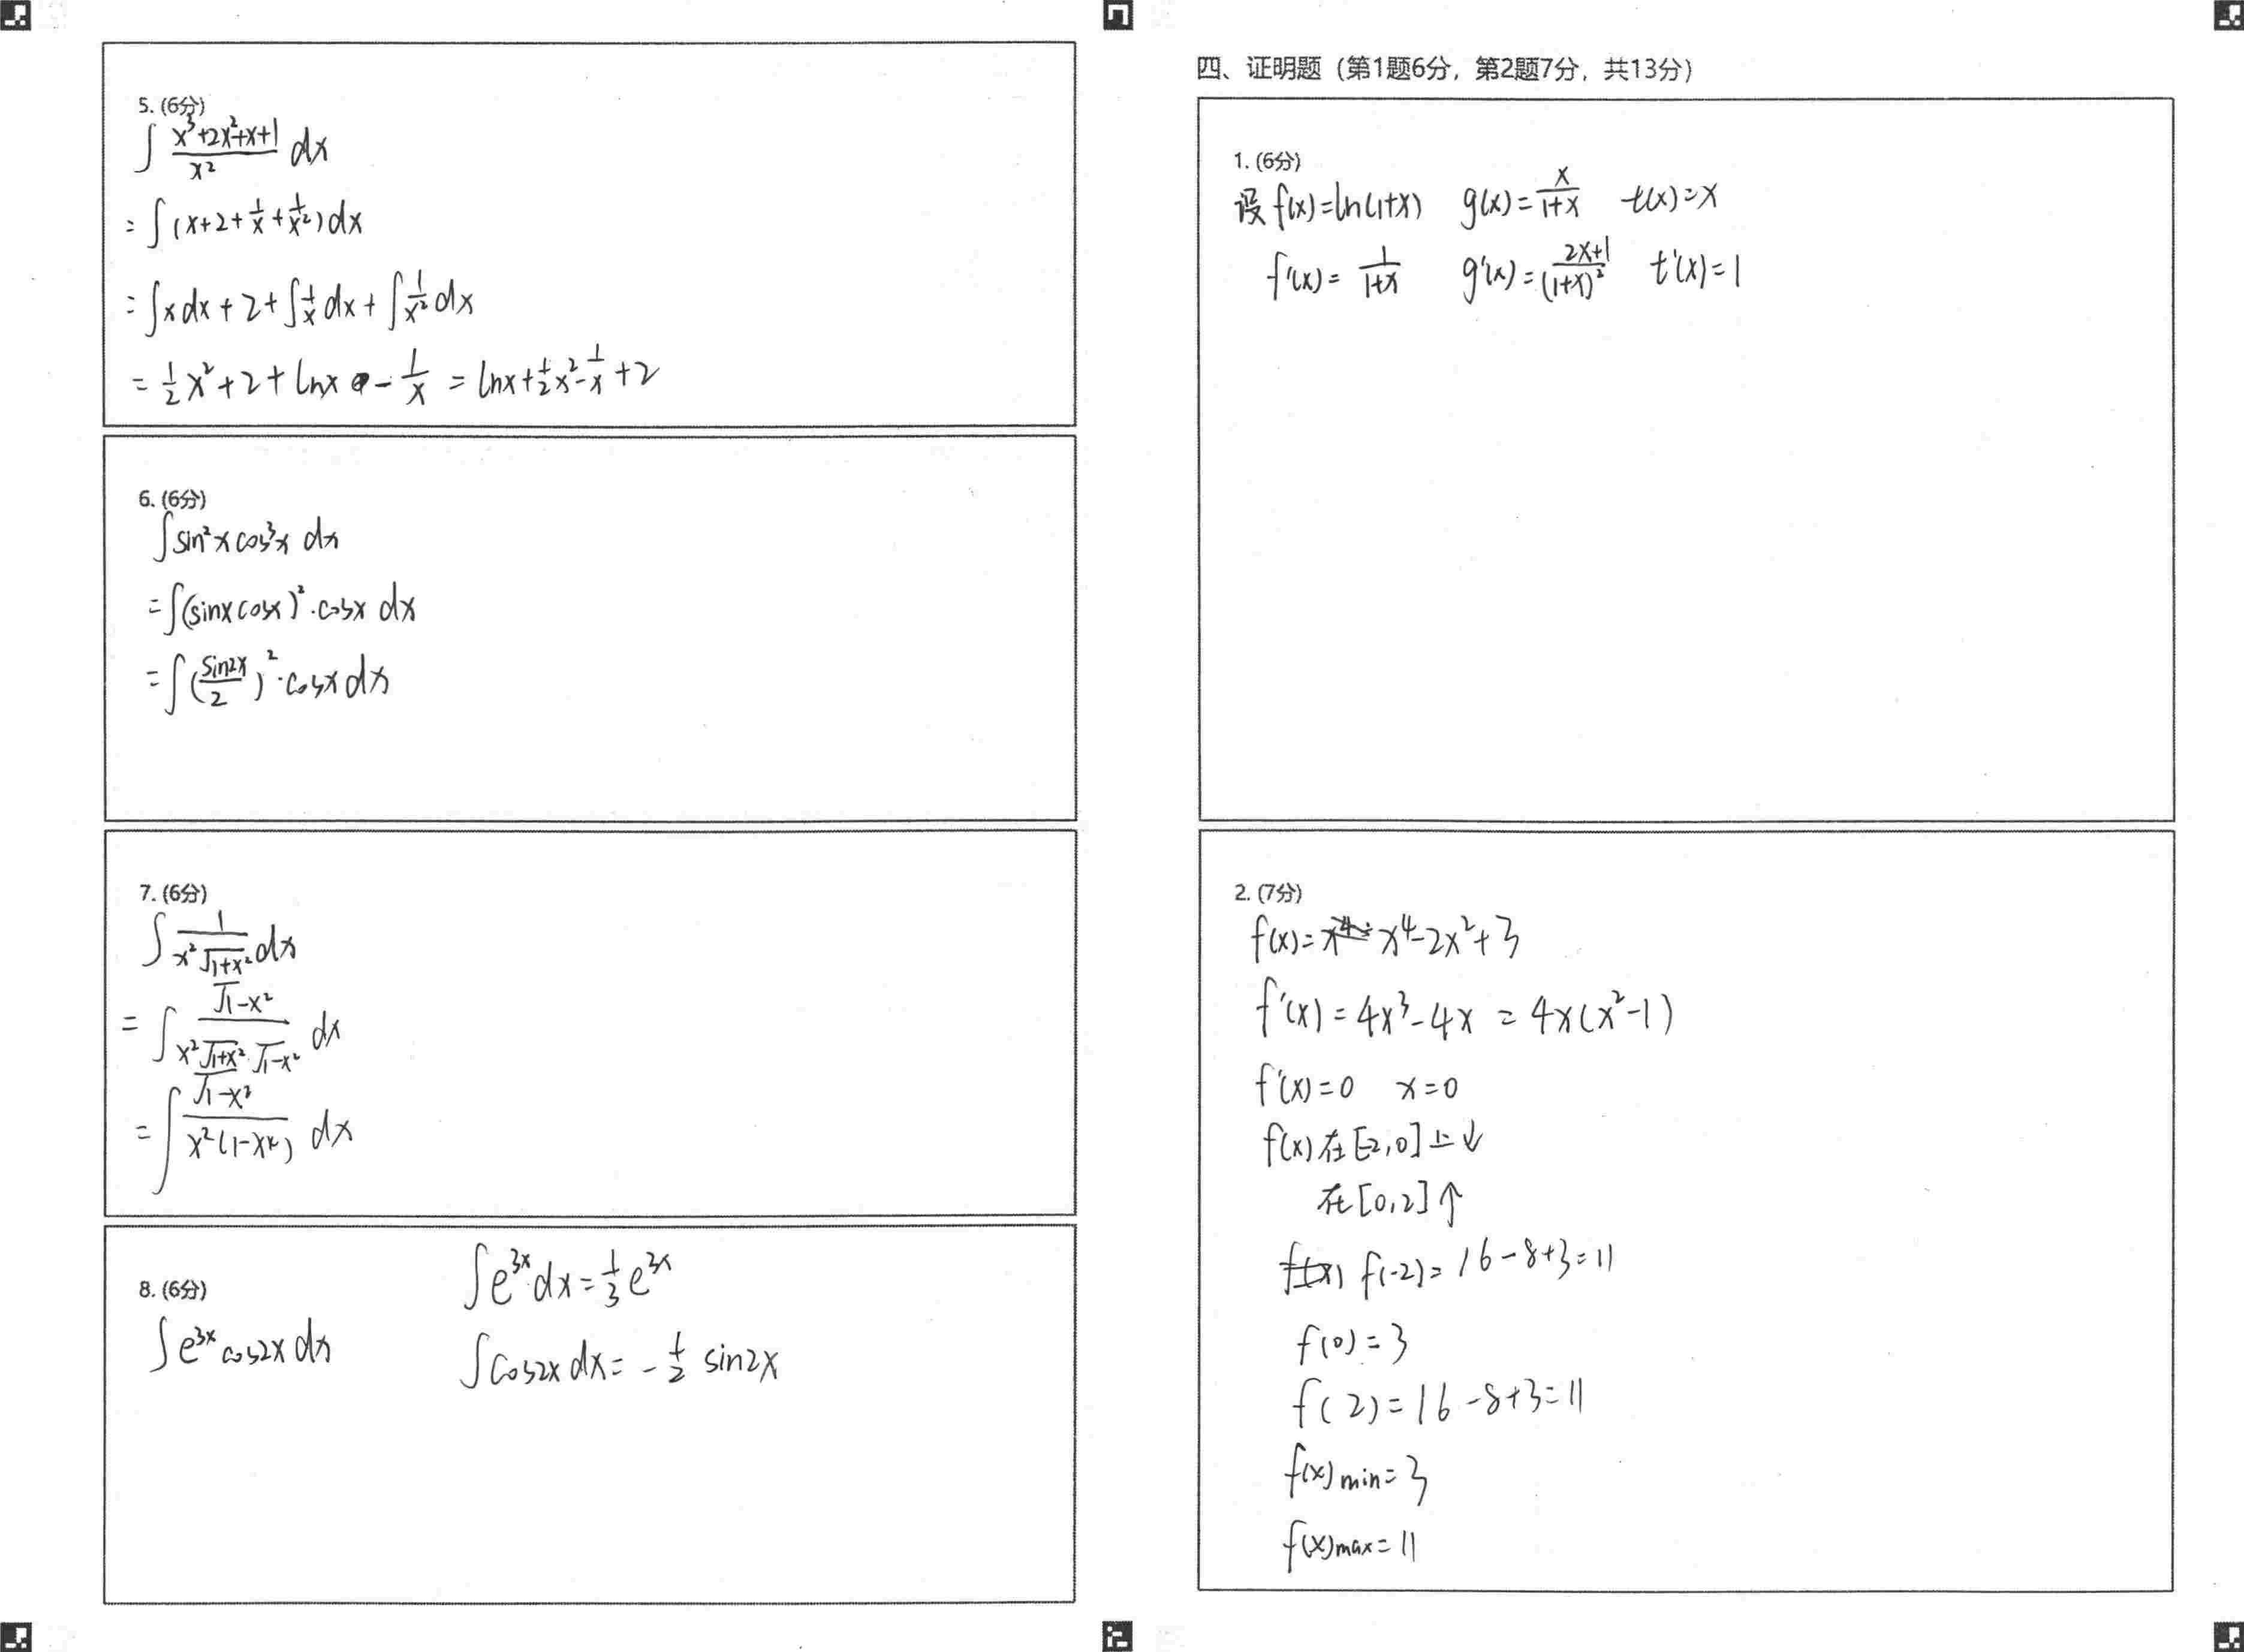 5. (6分)
∫ (x³+2x²+x+1)/x² dx
= ∫ (x+2+1/x+1/x²) dx
= ∫x dx + 2 + ∫1/x dx + ∫1/x² dx
= 1/2 x² + 2 + lnx - 1/x = lnx + 1/2 x² - 1/x + 2
6. (6分)
∫ sin²x cos³x dx
= ∫ (sinx cosx)² · cosx dx
= ∫ (sin2x/2)² · cosx dx
7. (6分)
∫ 1/(x²√(1+x²)) dx
= ∫ √(1-x²)/(x²√(1+x²)·√(1-x²)) dx
= ∫ √(1-x²)/(x²(1-x⁴)) dx
8. (6分)
∫ e³ˣ cos2x dx
∫ e³ˣ dx = 1/3 e³ˣ
∫ cos2x dx = - 1/2 sin2x
四、证明题（第1题6分，第2题7分，共13分）
1. (6分)
设 f(x)=ln(1+x) g(x)=x/(1+x) t(x)=x
f'(x)=1/(1+x) g'(x)=(2x+1)/(1+x)² t'(x)=1
2. (7分)
f(x)=x⁴-2x²+3
f'(x)=4x³-4x=4x(x²-1)
f'(x)=0 x=0
f(x)在[-2,0]上↓
在[0,2]↑
f(-2)=16-8+3=11
f(0)=3
f(2)=16-8+3=11
f(x)min=3
f(x)max=11